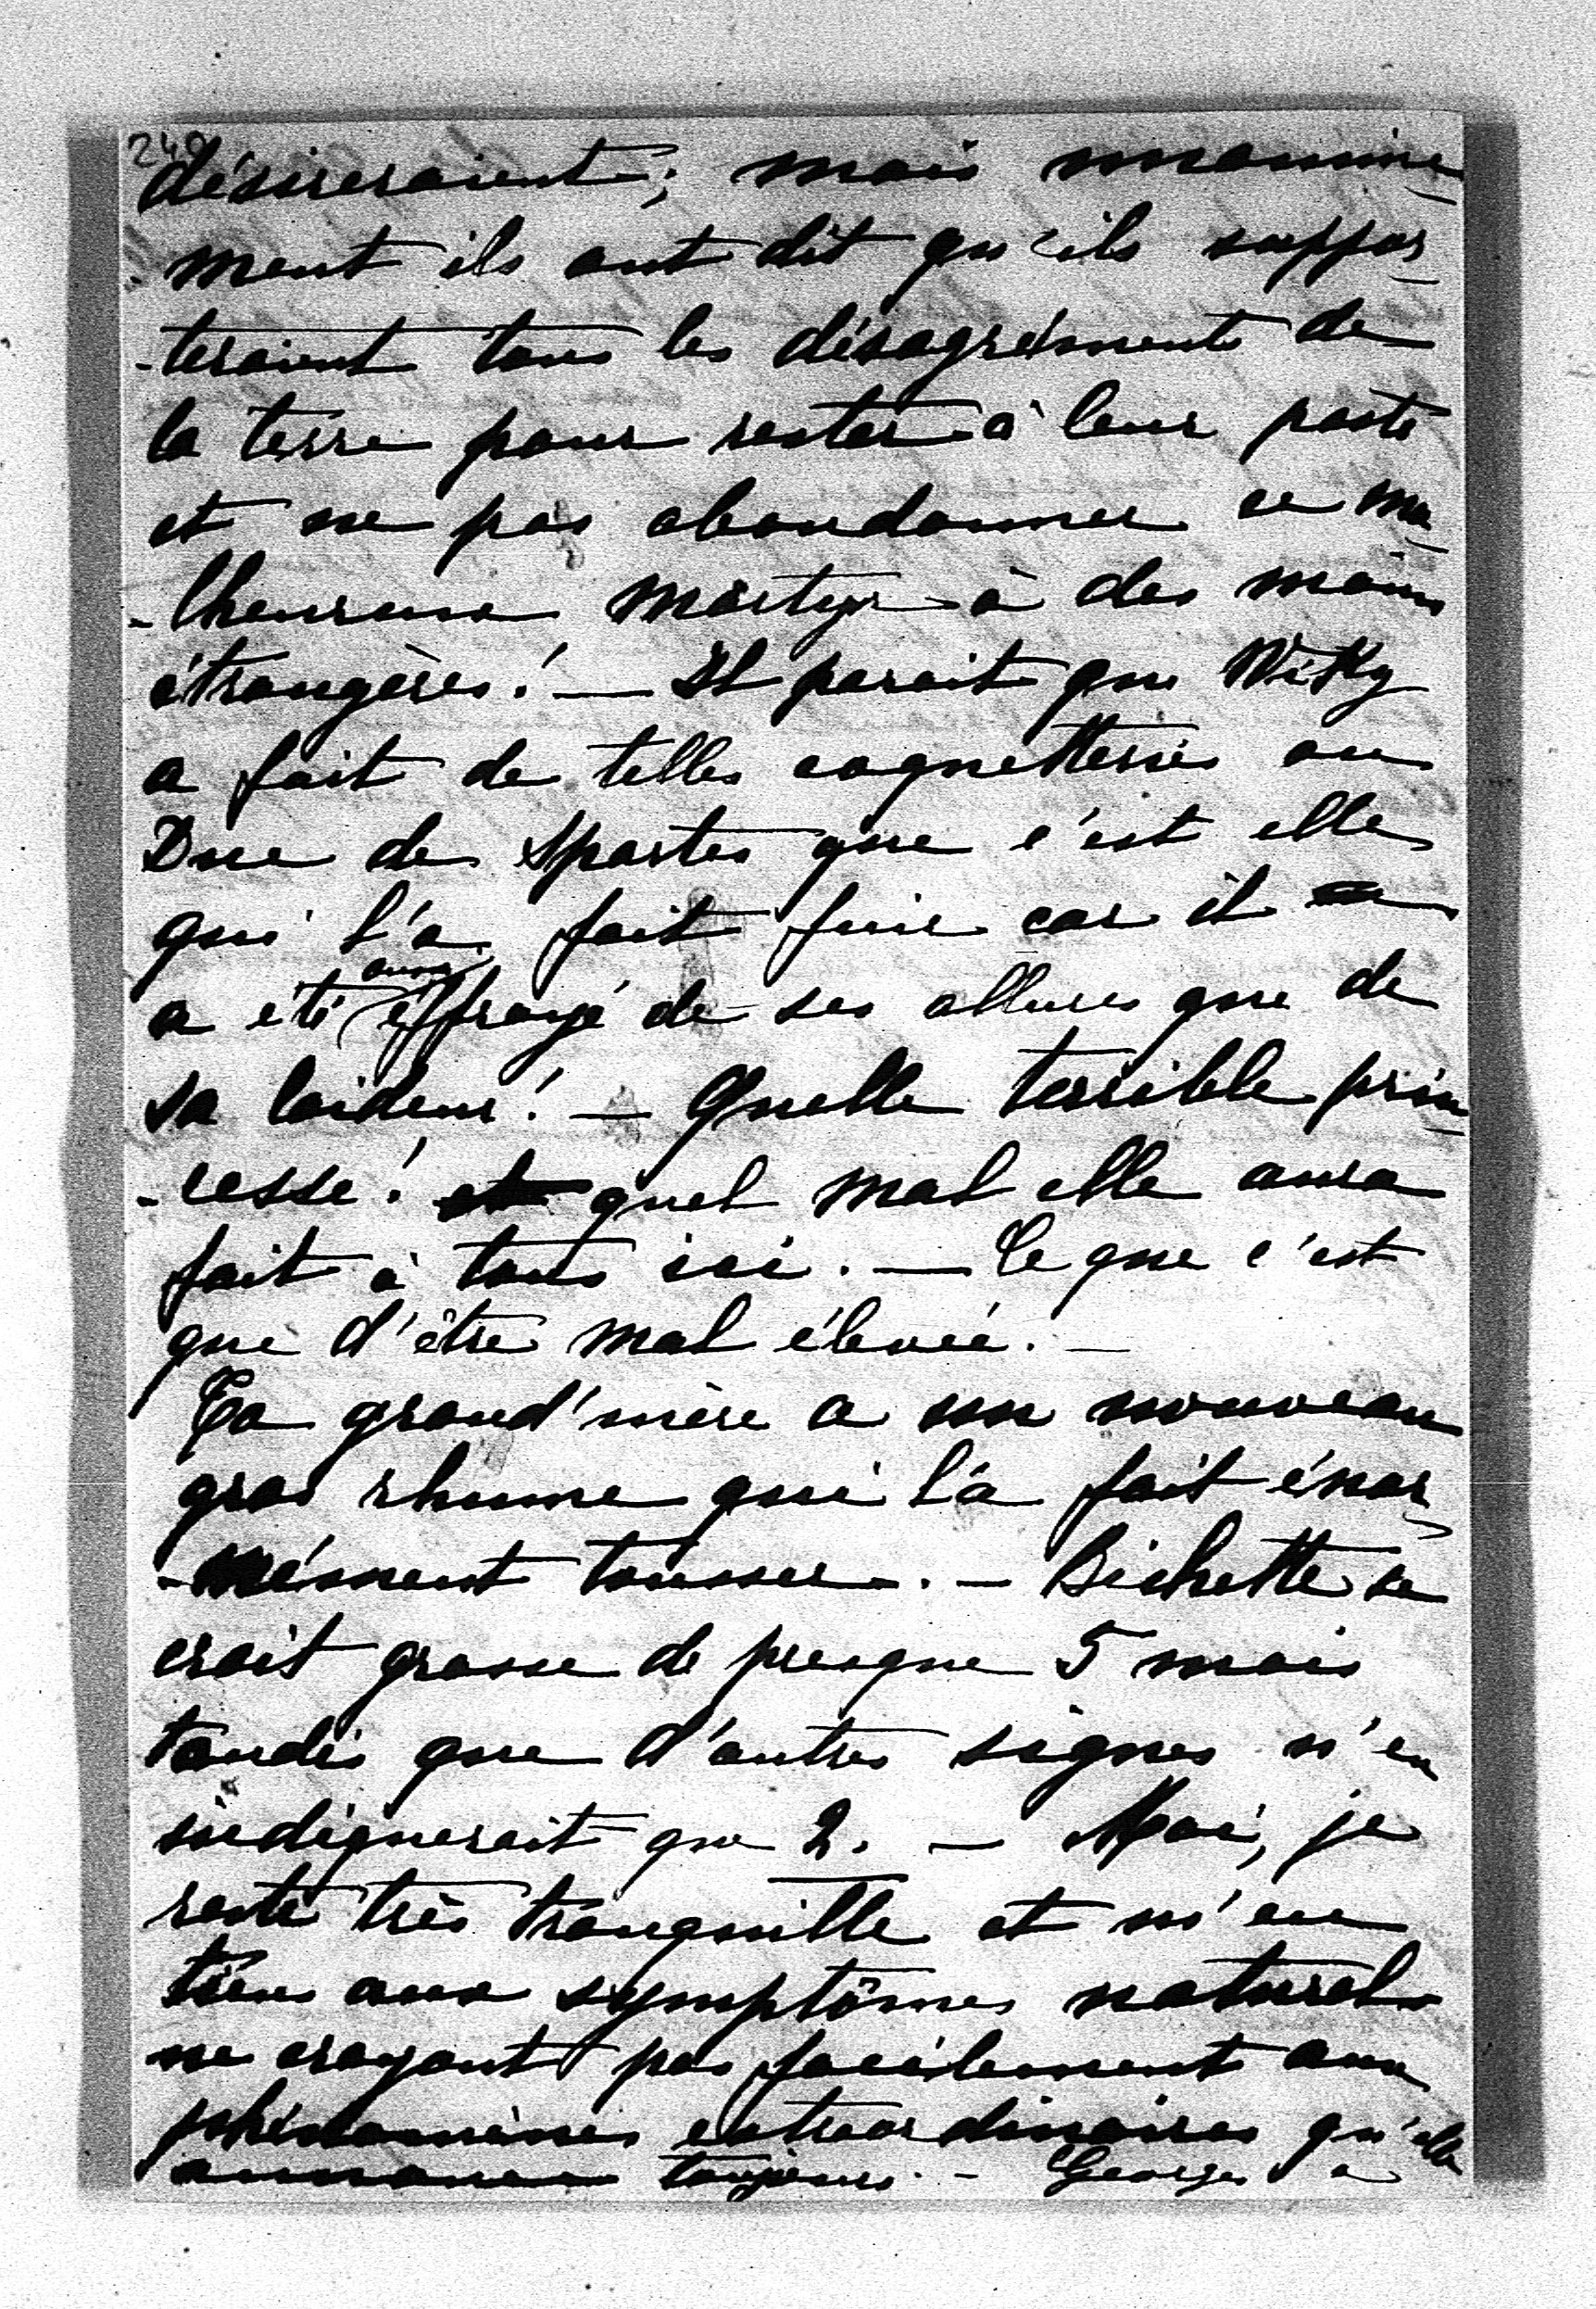 249
désireraient; mais unanime-
-ment ils ont dit qu'ils suppor-
-teraient tous les désagréments de
la terre pour rester à leur poste
et ne pas abandonner ce ma-
-lheureux martyr à des mains
étrangères! — Il parait que Wiky
a fait de telles coquetteries au
Duc de Spartes que c'est elle
qui l'a fait fuir car il
a été aussi effrayé de ses allures que de
sa laideur! — Quelle terrible prin-
-cesse! et quel mal elle aura
fait à tous ici. — Ce que c'est
que d'être mal élevée. —
Ta grand'mère a un nouveau
gros rhume qui l'a fait énor-
-mément tousser. — Bichette se
croit grosse de presque 5 mois
tandis que d'autres signes n'en
indiquerait que 2. — Moi, je
reste très tranquille et m'en
tien aux symptômes naturels
ne croyant pas facilement aux
phénomènes extraordinaires qu'elle
annonce toujours. — Georges a